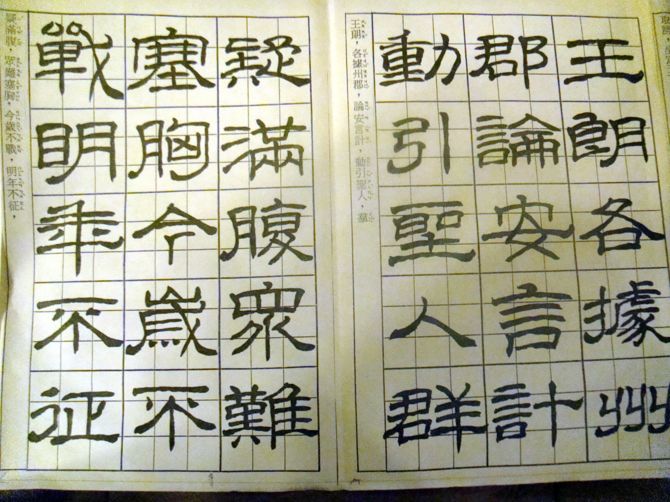 王朗各據州
郡論安言計
動引聖人群
王朗，各據州郡，論安言計，動引聖人，羣
疑滿腹眾難
塞胸今歲不
戰明年不征
疑滿腹，眾難塞胸，今歲不戰，明年不征，